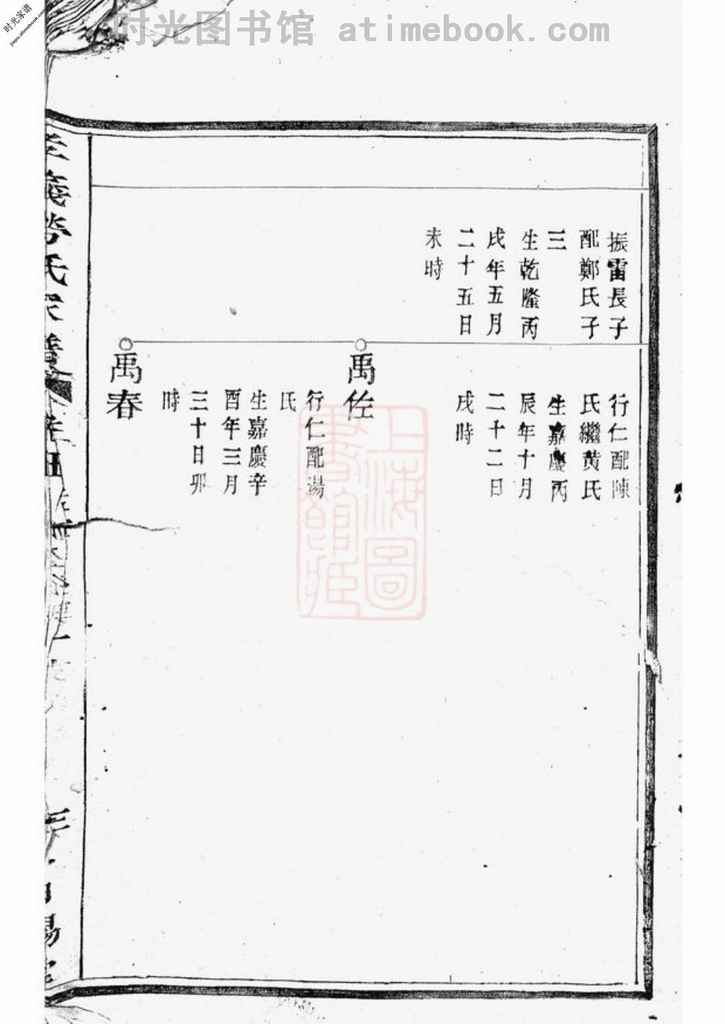 时光图书馆 atimebook.com
时光家谱
振雷長子
配鄭氏子
三
生乾隆丙
戌年五月
二十五日
未時
禹佐
行仁配陳
氏繼黄氏
生嘉慶丙
辰年十月
二十二日
戌時
禹春
行仁配湯
氏
生嘉慶辛
酉年三月
三十日卯
時
義勞氏家譜
上海圖
書館藏